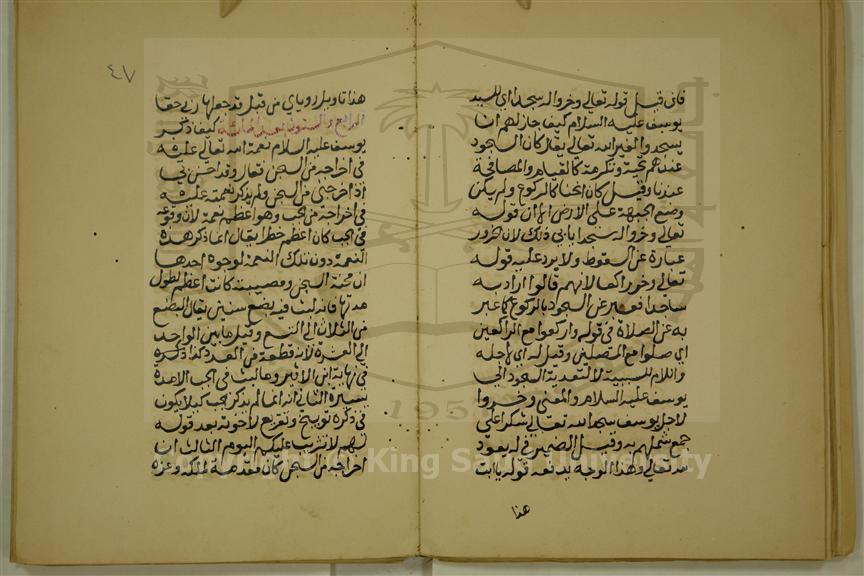 فان قيل قوله تعالى وخروا له سجدا اي للسيد
يوسف عليه السلام كيف جاز لهم ان
يسجدوا لغير الله تعالى يقال كان السجود
عندهم تحية وتكرمة كالقيام والمصافحة
عندنا وقيل كان انحنا كالركوع ولم يكن
وضع الجبهة على الارض الا ان قوله
تعالى وخروا له سجدا يابى ذلك لان الخرور
عبارة عن السقوط ولا يرد عليه قوله
تعالى وخر راكعا لانهم قالوا اراد به
ساجدا فعبر عن السجود بالركوع كما عبر
به عن الصلاة في قوله واركعوا مع الراكعين
اي صلوا مع المصلين وقيل له اي لاجله
واللام للسببية لا لتعدية السجود الى
يوسف عليه السلام والمعنى وخروا
لاجل يوسف سجدا لله تعالى شكرا على
جمع شملهم به وقيل الضمير في له يعود
لله تعالى وهذا الوجه يدفعه قوله يا ابت
هذا
٤٧
هذا تاويل روياي من قبل قد جعلها ربي حقا
الرابع والستون بعد المائة كيف ذكر
يوسف عليه السلام نعمة الله تعالى عليه
في اخراجه من السجن فقال وقد احسن بي
اذ اخرجني من السجن ولم يذكر نعمته عليه
في اخراجه من الجب وهو اعظم نعمة لان وقوعه
في الجب كان اعظم خطرا يقال انما ذكر هذه
النعمة دون تلك النعمة لوجوه احدها
ان محنة السجن ومصيبته كانت اعظم لطول
مدتها فانه لبث فيه بضع سنين يقال البضع
من الثلاث الى التسع وقيل ما بين الواحد
الى العشرة لانه قطعة من العدد كذا ذكره
في نهاية ابن الاثير وما لبث في الجب الا مدة
يسيرة الثاني انه انما لم يذكر الجب كيلا يكون
في ذكره توبيخ وتقريع لاخوته بعد قوله
لهم لا تثريب عليكم اليوم الثالث ان
اخراجه من السجن كان مقدمة لملكه وعزه
Copyright © King Saud University
195